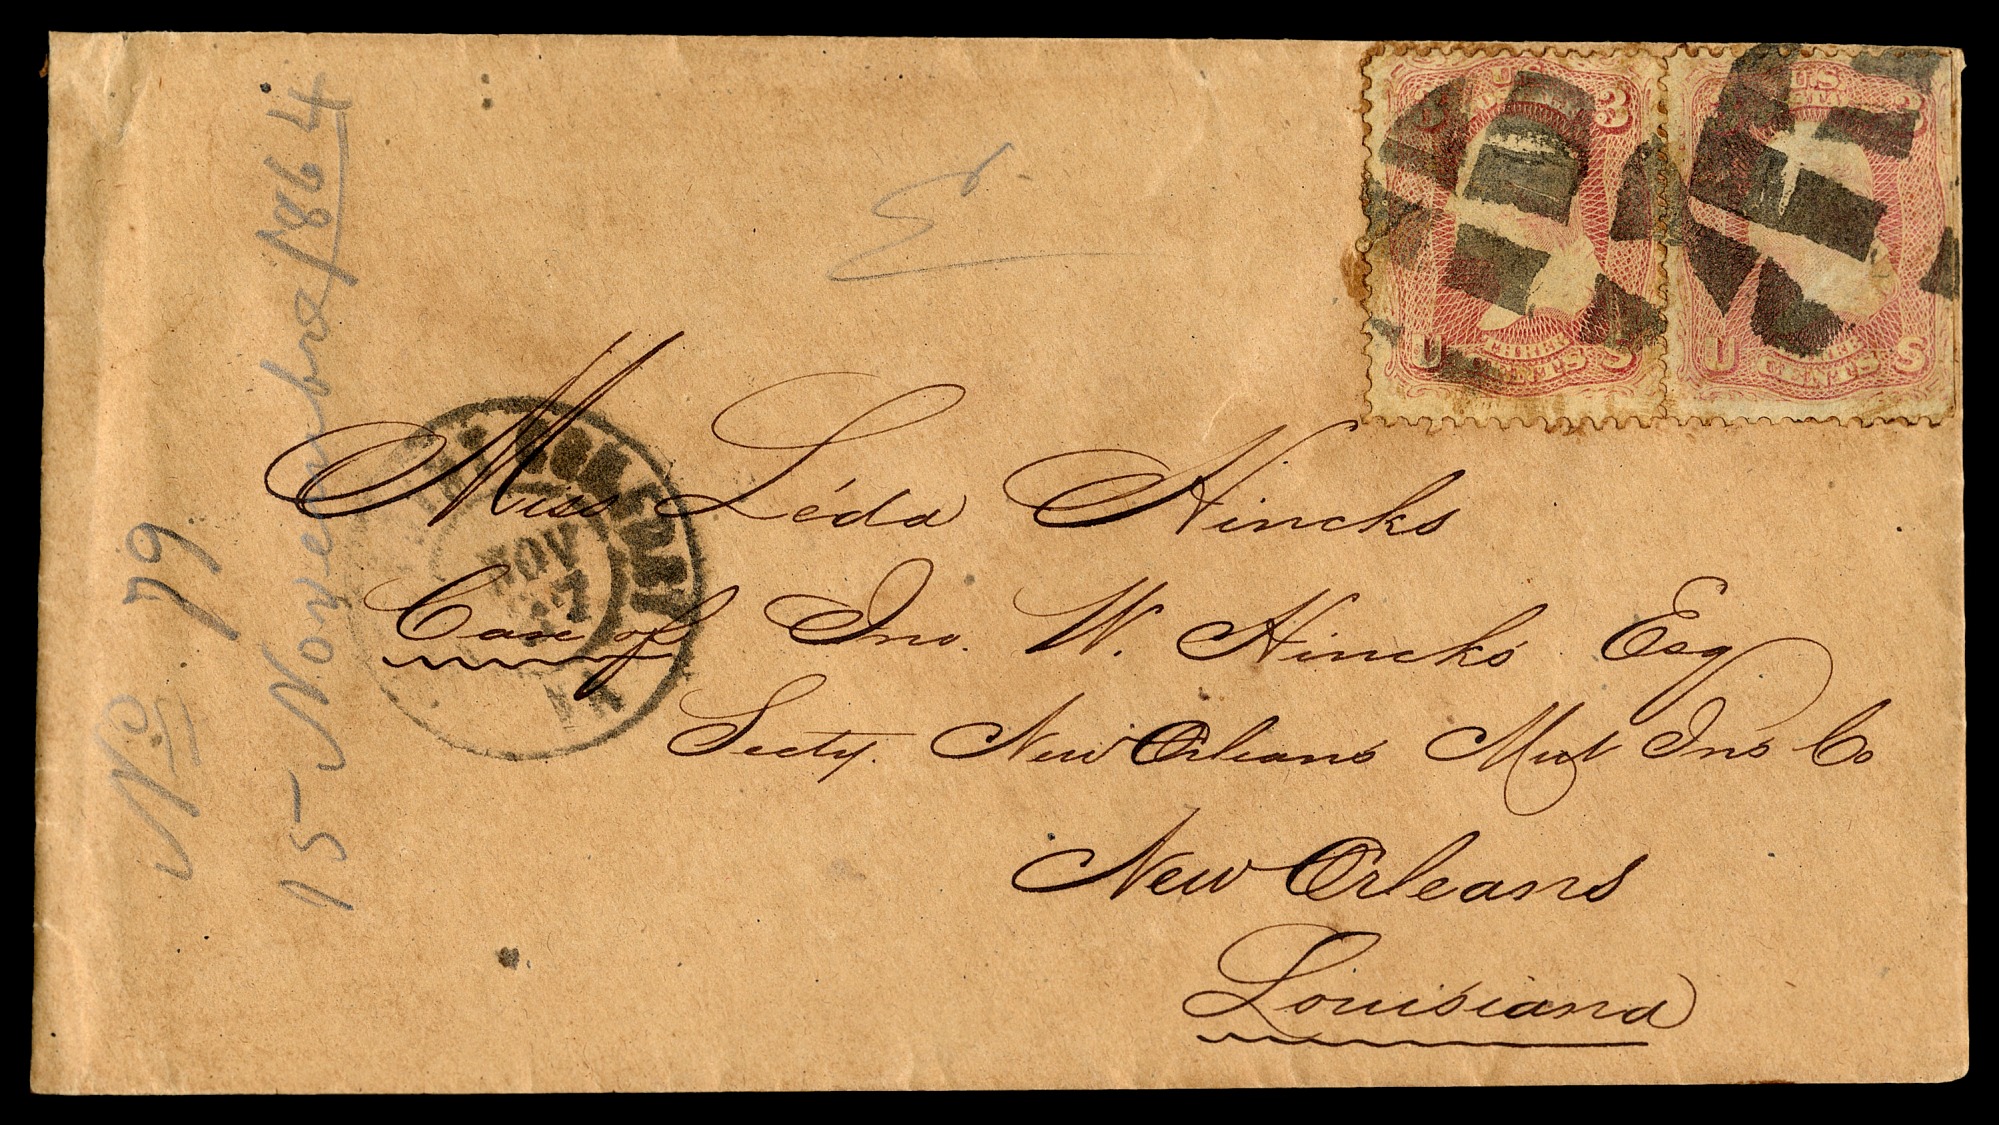 No 79
15 Novembre/1864
U.S. 3
U THREE CENTS S
U.S. 3
U CENTS S
Miss Léda Hincks
Care of Jno. W. Hincks Esq
Secty. New Orleans Mut Ins Co
New Orleans
Louisiana
NOV
VA